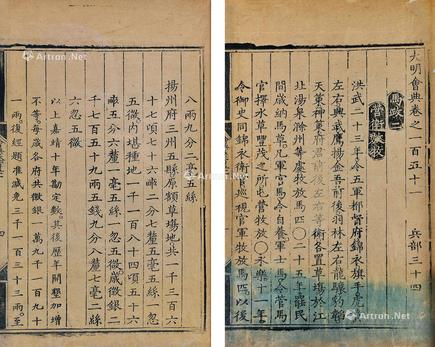 大明會典卷之一百五十一 兵部三十四
馬政二
營衛放牧
洪武二十三年令五軍都督府錦衣旗手虎
左右興武鷹揚金吾前後羽林左右龍驤豹韜
天策神策府軍前後左右等衛各置草場於江
北湯泉滁州等處牧放馬匹○二十五年罷民
間歲納馬草凡軍官馬令自養軍士馬令管馬
官擇水草豐茂之所屯營牧放○永樂十一年
令御史同錦衣衛官巡視官軍牧放馬匹以後
八兩九分三絲
揚州府三州五縣原額草場地共一千三百六
十七頃七十六畝二分七釐五毫五絲一忽
五微內堪種地一千一百八十四頃五十六
畝五分六釐一毫五絲一忽五微歲徵銀二
千七百五十九兩五錢九分八釐七毫二絲
六忽五微
以上嘉靖十年勘定數其後歷年開墾加增
不等每歲各府共徵銀一萬九千一百九十
一兩復經題准減免三千一百三十三兩至
四
Alamy